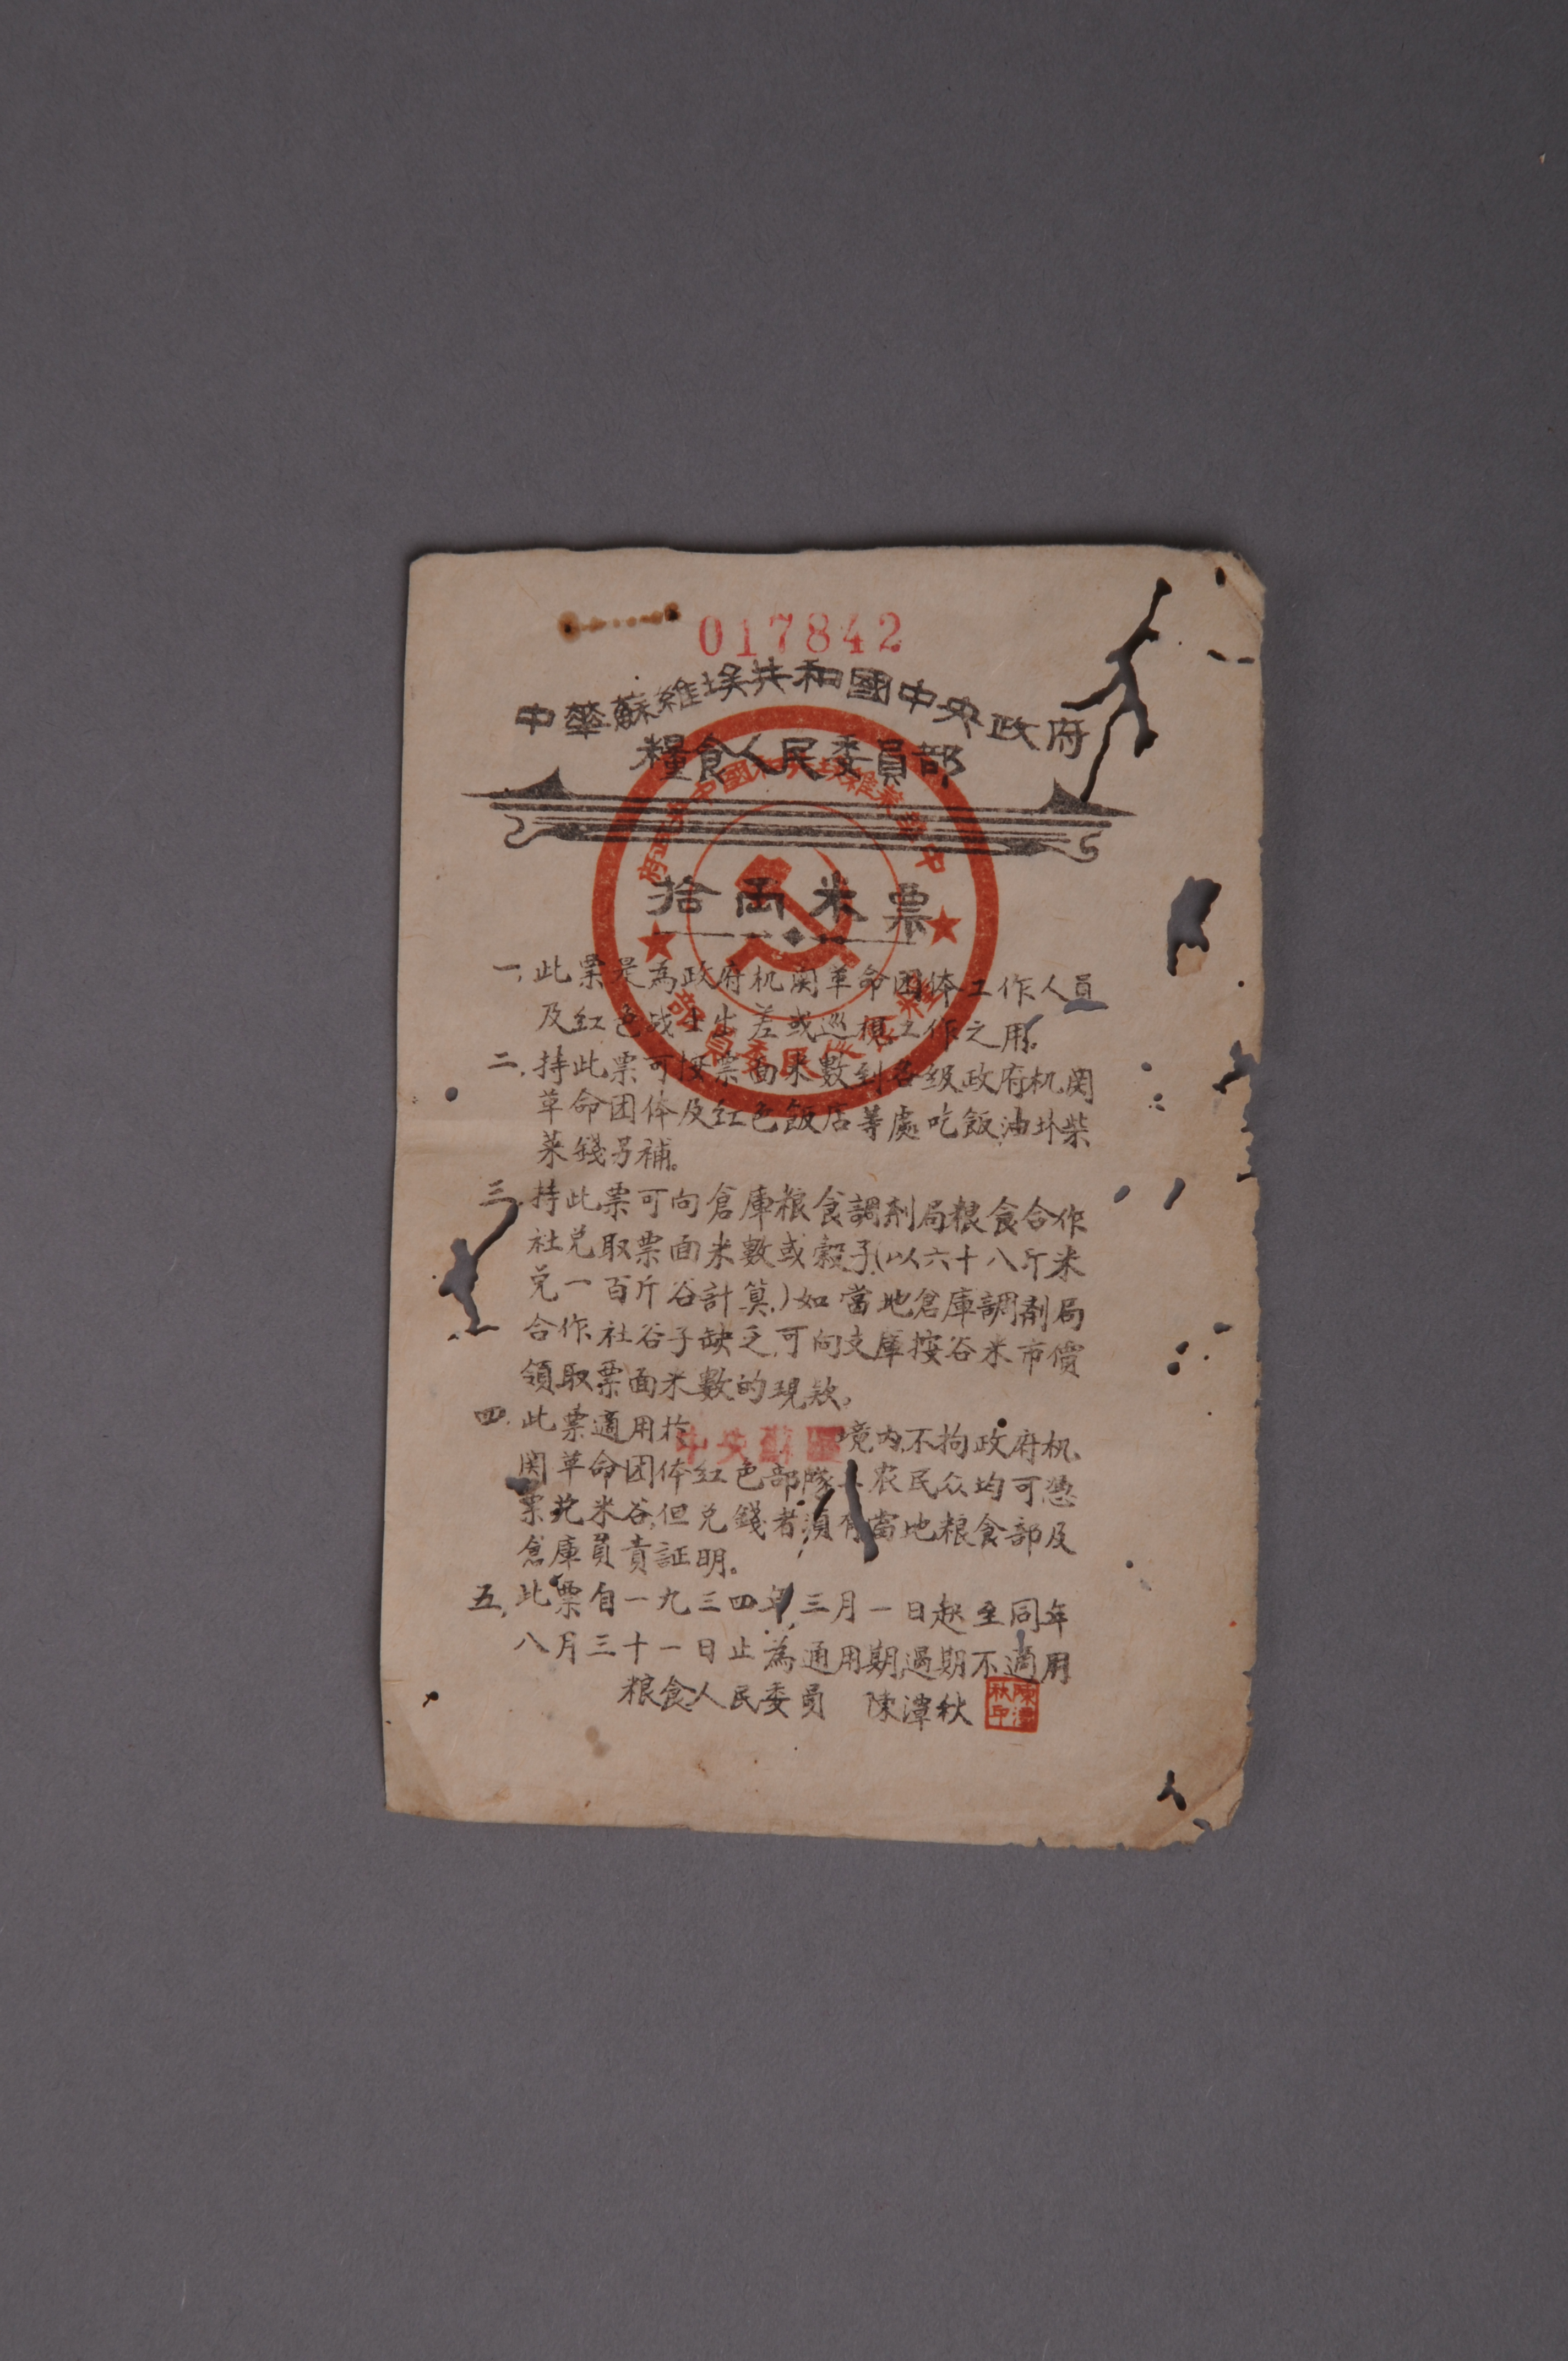 017842
中華蘇維埃共和國中央政府
糧食人民委員部
拾兩米票
一,此票是為政府机関革命团体工作人員
及红色战士出差或巡視工作之用。
二,持此票可按票面米數到各级政府机関
革命团体及红色飯店等處吃飯油坏柴
菜錢另補。
三,持此票可向倉庫粮食調剂局粮食合作
社兑取票面米數或穀子(以六十八斤米
兑一百斤谷計算,)如當地倉庫調剂局
合作社谷子缺乏,可向支庫按谷米市價
領取票面米數的現欵。
四,此票適用於中央蘇區境内,不拘政府机
関革命团体红色部隊工农民众均可憑
票兑米谷,但兑錢者須有當地粮食部及
倉庫負責証明。
五,此票自一九三四年三月一日起至同年
八月三十一日止為通用期過期不適用
粮食人民委員 陳潭秋
陳潭秋印
中華蘇維埃共和國中央政府
糧食人民委員部